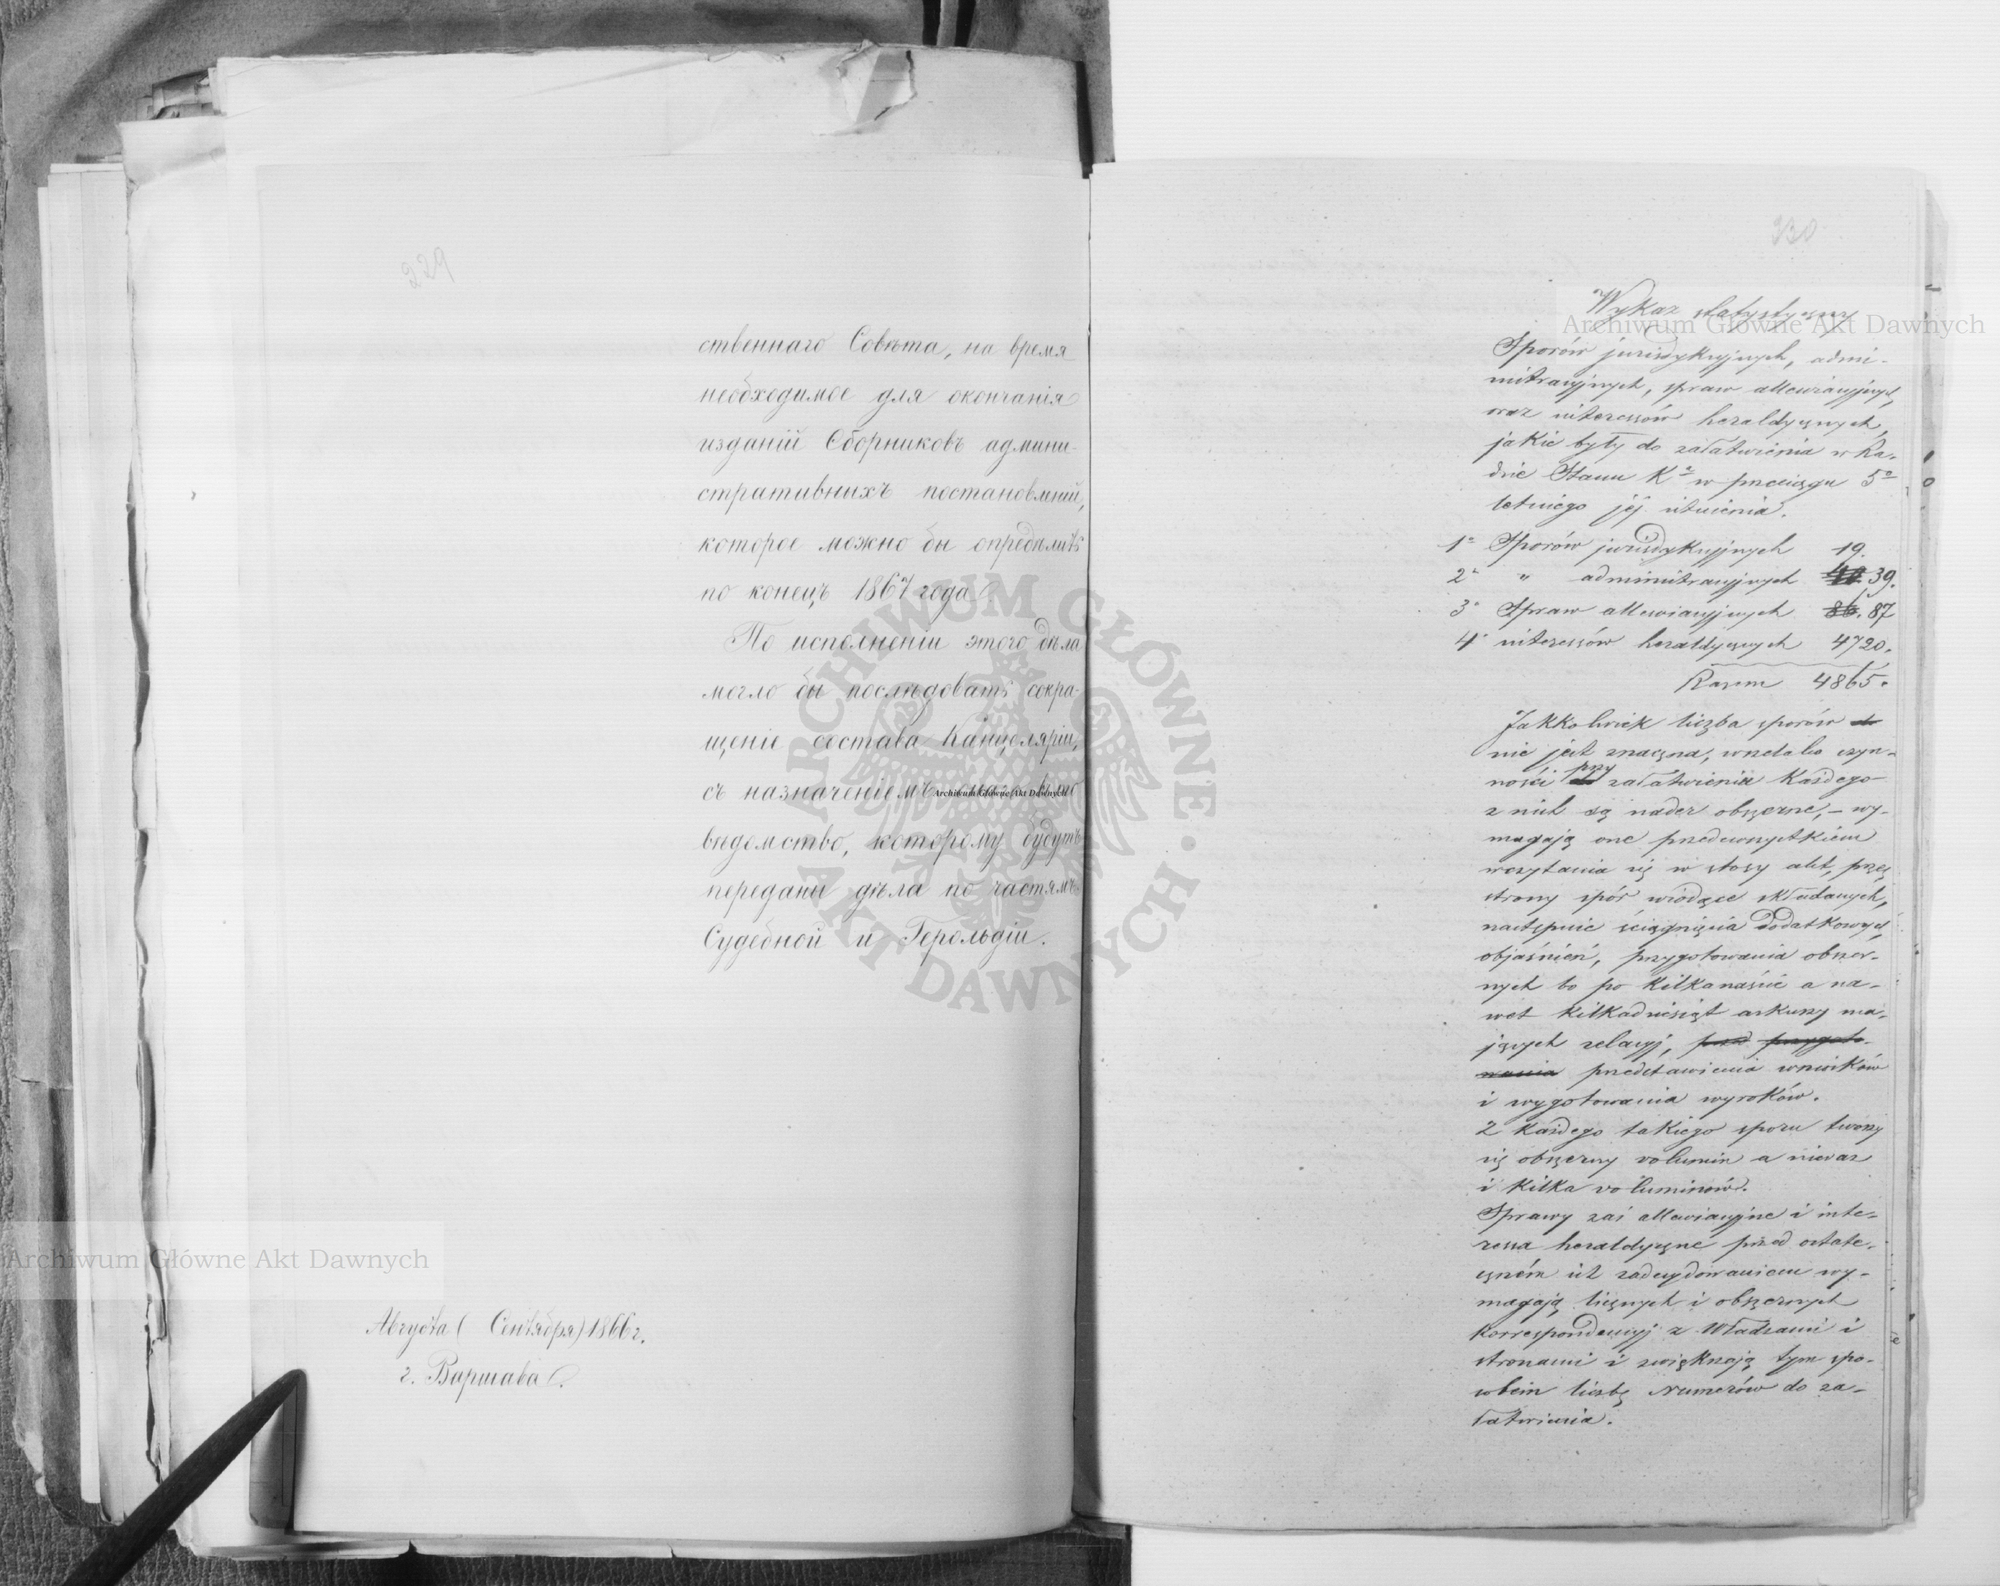 229
ственнаго Совѣта, на время
необходимое для окончанія
изданій Сборниковъ админи-
стративныхъ постановленій,
которое можно бы опредѣлить
по конецъ 1867 года.
По исполненіи этого дѣла
могло бы послѣдовать сокра-
щеніе состава Канцеляріи,
съ назначеніемъ
вѣдомство, которому будутъ
переданы дѣла по частямъ
Судебной и Герольдіи.
Августа ( Сентября) 1866 г.
г. Варшава.
330
Wykaz statystyczny
Sporów jurisdykcyjnych, admi-
nistracyjnych, spraw allewiacyjnych,
oraz interessów heraldycznych,
jakie były do załatwienia w Ra-
dzie Stanu Kа w przeciągu 5o
letniego jéj istnienia.
1o Sporów jurisdykcyjnych 19.
2o " administracyjnych 40. 39.
3o Spraw allewiacyjnych 86. 87
4o interessów heraldycznych 4720.
Razem 4865.
Jakkolwiek liczba sporów
nie jest znaczna, wszelako czyn-
ności przy załatwieniu każdego
z nich są nader obszerne, – wy-
magają one przedewszystkiem
wczytania się w stosy akt, przez
strony spór wiodące składanych,
następnie ściągnięcia dodatkowych
objaśnień, przygotowania obszer-
nych bo po kilkanaście a na-
wet kilkadziesiąt arkuszy ma-
jących relacyj, przed przygoto-
wania przedstawienia wniosków
i wygotowania wyroków.
Z każdego takiego sporu tworzy
się obszerny volumin a nieraz
i kilka voluminów.
Sprawy zaś allewiacyjne i inte-
ressa heraldyczne przed ostate-
czném ich zadecydowaniem wy-
magają licznych i obszernych
korrespondencyj z Władzami i
stronami i zwiększają tym spo-
sobem liczbę Numerów do za-
łatwienia.
Archiwum Główne Akt Dawnych
Archiwum Główne Akt Dawnych
Archiwum Główne Akt Dawnych
ARCHIWUM GŁÓWNE · AKT DAWNYCH ·